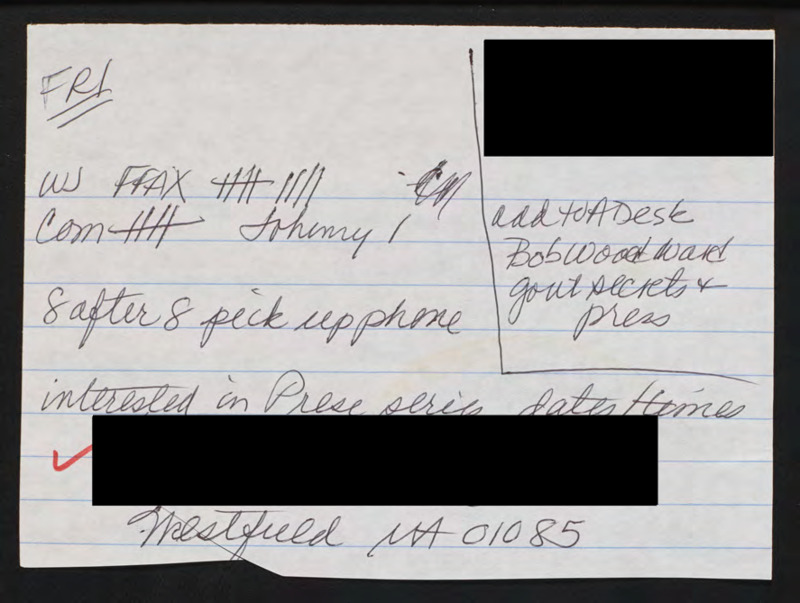 FRI
W FFAX
Com Johnny 1
8 after 8 pick up phone
add to A Desk
Bob Woodward
govt secrets +
press
interested in Prese series dates + times
Westfield MA 01085